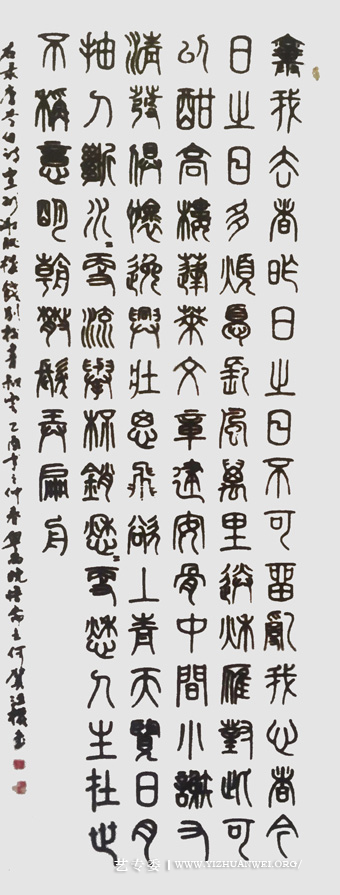 棄我去者昨日之日不可留亂我心者今
日之日多煩憂長風萬里送秋雁對此可
以酣高樓蓬萊文章建安骨中間小謝又
清發俱懷逸興壯思飛欲上青天覽日月
抽刀斷水〻更流舉杯銷愁〻更愁人生在世
不稱意明朝散髮弄扁舟
右录唐李白詩宣州謝朓樓餞別校書叔雲乙酉年之仲春
艺专委 | WWW.YIZHUANWEI.ORG/